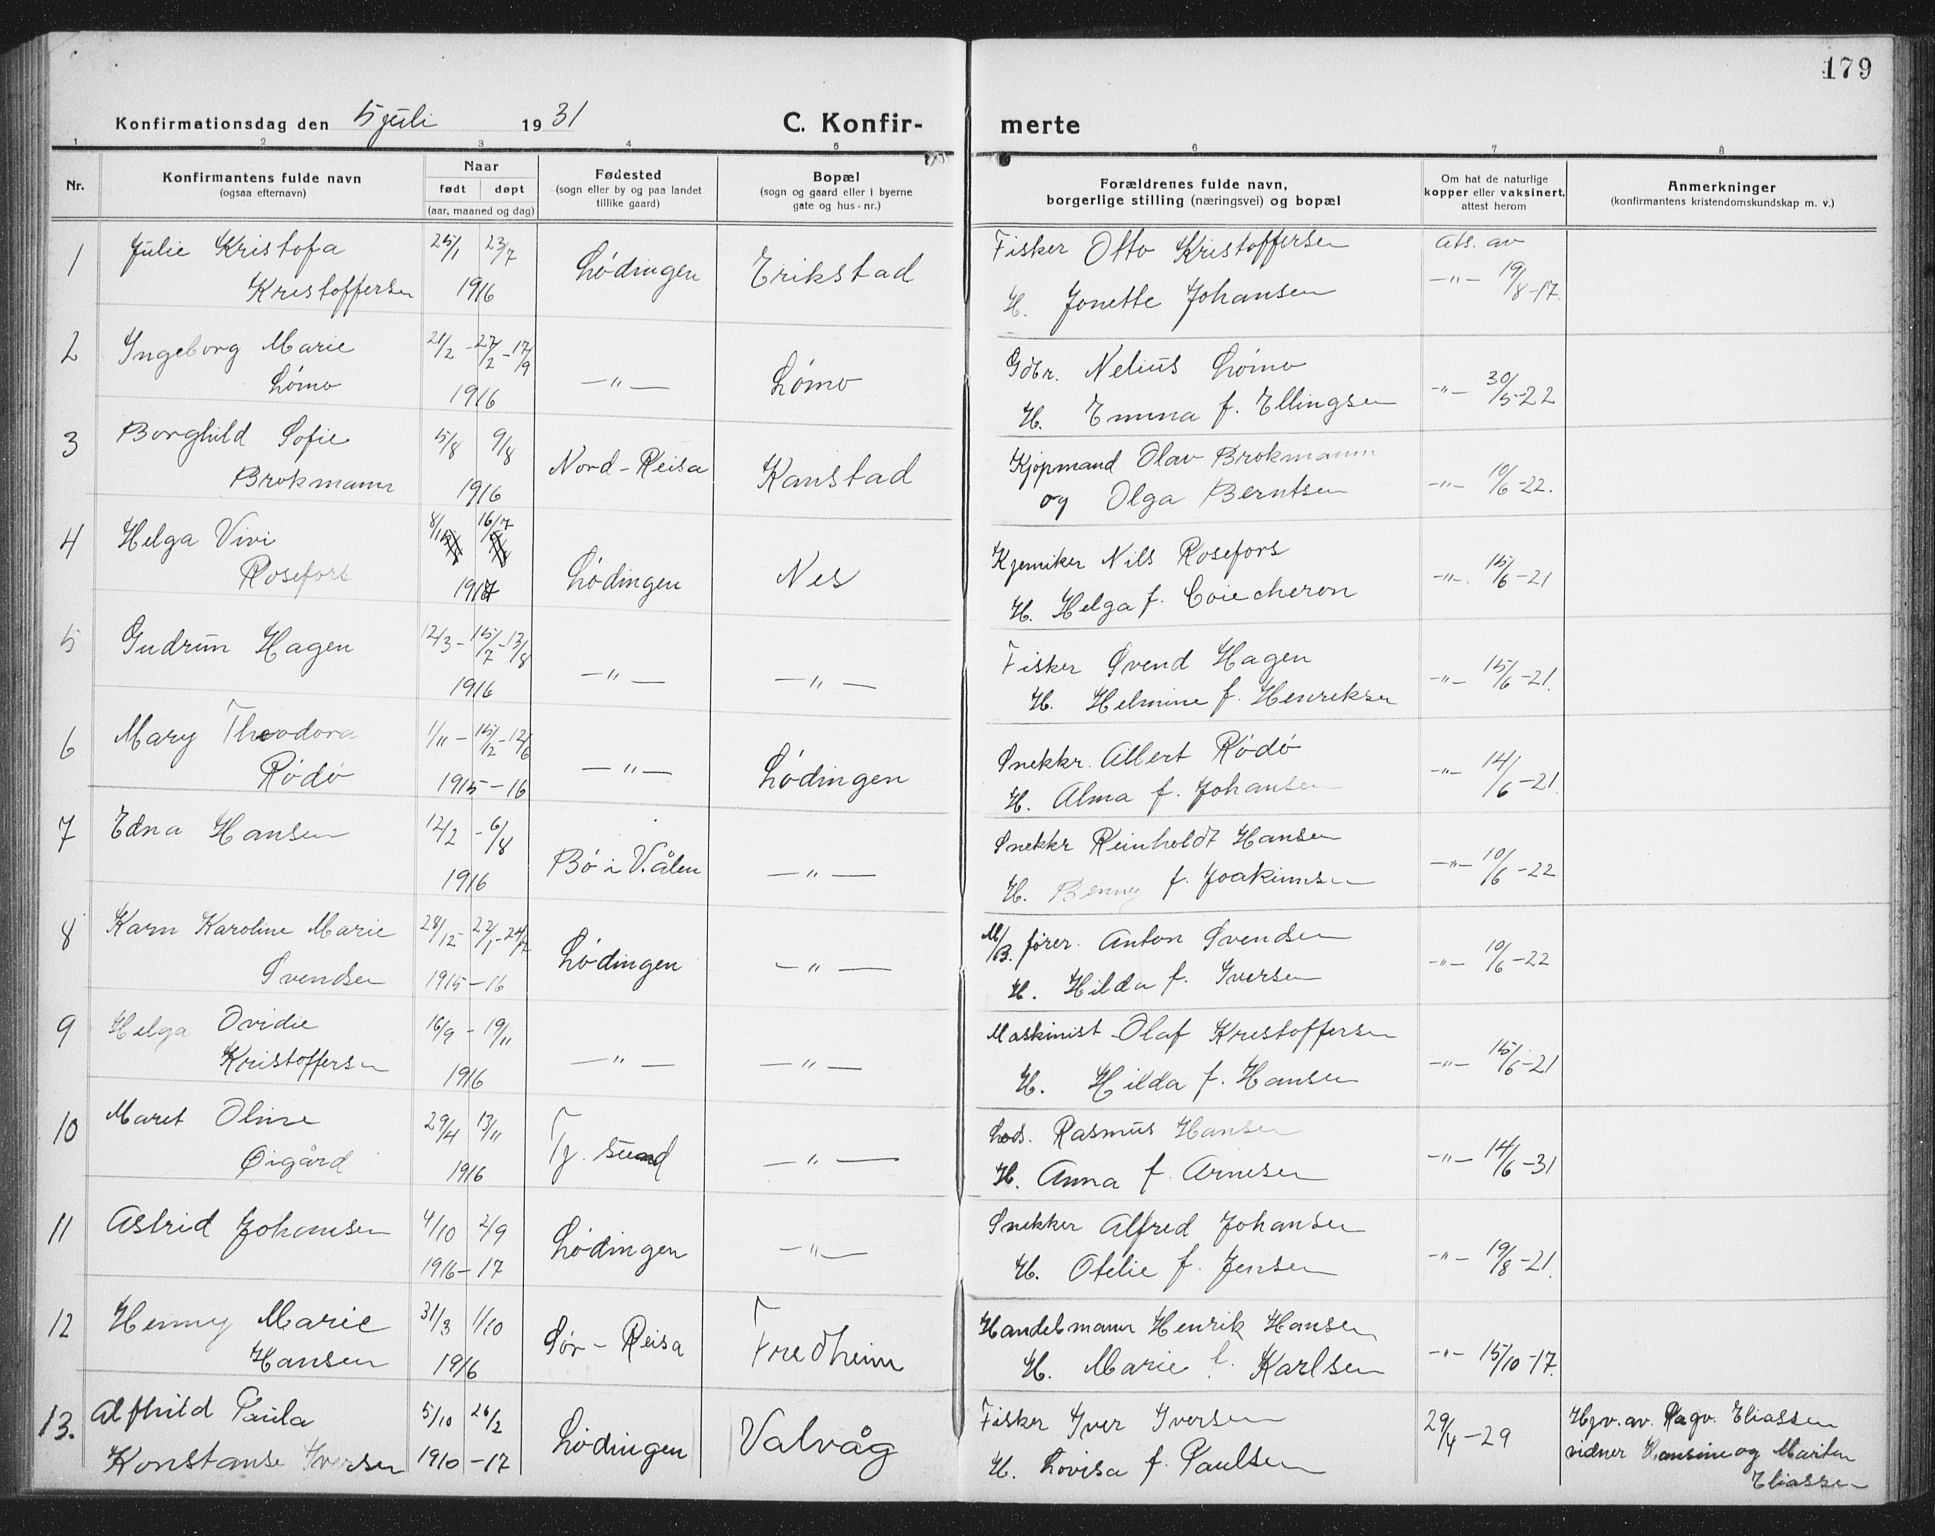 179
Konfirmationsdag den 5 juli 1931 C. Konfirmerte
1 2 3 4 5 6 7 8
Nr.
Konfirmantens fulde navn
(ogsaa efternavn)
Naar
født døpt
(aar, maaned og dag)
Fødested
(sogn eller by og paa landet
tillike gaard)
Bopæl
(sogn og gaard eller i byerne
gate og hus-nr.)
Forældrenes fulde navn,
borgerlige stilling (næringsvei) og bopæl
Om hat de naturlige
kopper eller vaksinert,
attest herom
Anmerkninger
(konfirmantens kristendomskundskap m. v.)
1 Julie Kristofa 25/1 23/7 Lødingen Erikstad Fisker Otto Kristoffersen ats. av
Kristoffersen 1916 H. Jonette Johansen -"- 19/8-17.
2 Ingeborg Marie 21/2 - 27/2 - 17/9 -"- Lømo Gdbr. Nelius Lømo
Lømo 1916 H. Emma f. Ellingsen -"- 30/5-22
3 Borghild Sofie 5/8 9/8 Nord-Reisa Kanstad Kjøpmand Olav Brokmann
Brokmann 1916 og Olga Berntsen -"- 10/6-22.
4 Helga Vivi 8/11 16/17 Lødingen Nes Kjemiker Nils Rosefors
Rosefors H. Helga f. -"- 15/6-21
5 Gudrun Hagen 12/3 - 15/7 - 13/8 -"- -"- Fisker Svend Hagen
1916 H. Helmine f. Henriksen -"- 15/6-21.
6 Mary Theodora 1/11 - 15/2 - 12/6 -"- Lødingen Snekkr. Albert Rødø
Rødø 1915-16 H. Alma f. Johansen -"- 14/6-21.
7 Edna Hansen 12/2 - 6/8 Bø i V.ålen -"- Snekkr Reinholdt Hansen
1916 H. Benny f. Joakimsen -"- 10/6-22
8 Karn Karoline Marie 28/12 - 22/1 - 24/12 Lødingen -"- M/B. fører. Anton Svendsen
Svendsen 1915-16 H. Hilda f. Iversen -"- 10/6-22
9 Helga Ovidie 16/9 - 19/11 -"- -"- Maskinist Olaf Kristoffersen
Kristoffersen 1916 H. Hilda f. Hansen -"- 15/6-21
10 Maret Oline 29/4 13/11 Tj.sund -"- Lods. Rasmus Hansen
Øigård 1916 H. Anna f. Arnesen -"- 14/6-31
11 Astrid Johansen 4/10 2/9 Lødingen -"- Snekker Alfred Johansen
1916-17 H. Otelie f. Jensen -"- 19/8-21.
12 Henny Marie 31/3 1/10 Sør-Reisa Fredheim Handelsmann Henrik Hansen
Hansen 1916 H. Marie f. Karlsen -"- 15/10-17.
13. Alfhild Paula 5/10 26/2 Lødingen Valvåg Fisker Iver Iversen 29/4-29 Hjv. av. Ragv. Eliassen
Konstanse Iversen 1910-17 H. Lovisa f. Paulsen vidner Hansine og Martin
Eliassen